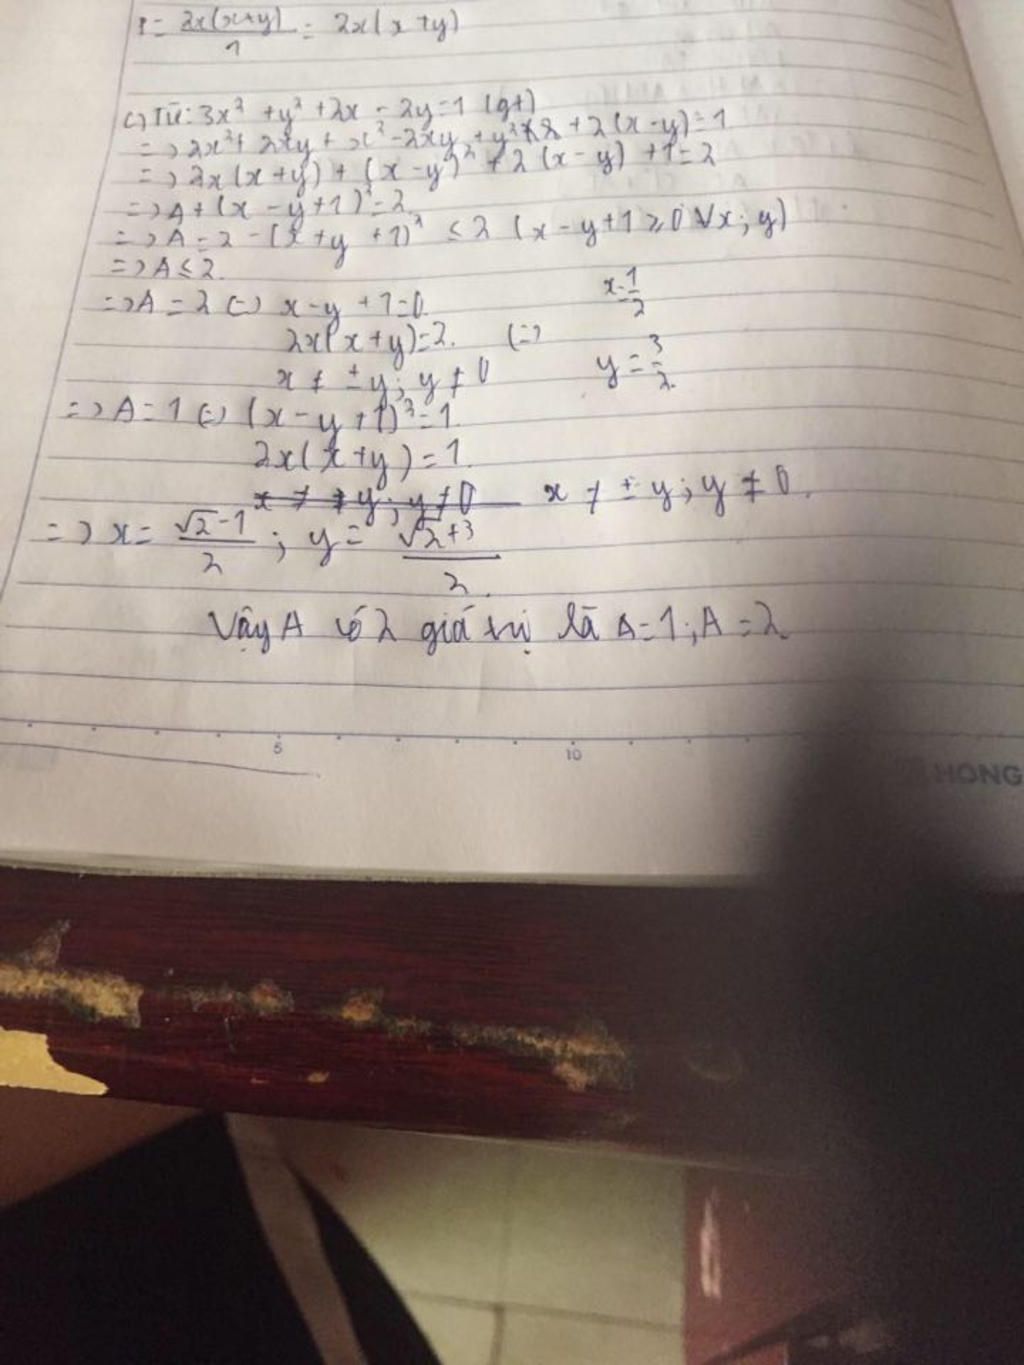 P = 2x(x+y)/1 = 2x(x+y)
c) Từ: 3x² + y² + 2x - 2y = 1 (gt)
=> 2x² + 2xy + x² - 2xy + y² + 2(x-y) = 1
=> 2x(x+y) + (x-y)² + 2(x-y) + 1 = 2
=> A + (x-y+1)² = 2
=> A = 2 - (x+y+1)² ≤ 2 (x-y+1 ≥ 0 ∀x; y)
=> A ≤ 2.
=> A = 2 (=) x-y+1=0 x=1/2
2x(x+y)=2. (=)
x ≠ ±y; y ≠ 0 y = 3/2.
=> A = 1 (=) (x-y+1)²=1.
2x(x+y)=1.
x ≠ ±y; y ≠ 0.
=> x = √2-1/2 ; y = √2+3/2.
Vậy A có 2 giá trị là A=1; A=2
5 10
HONG